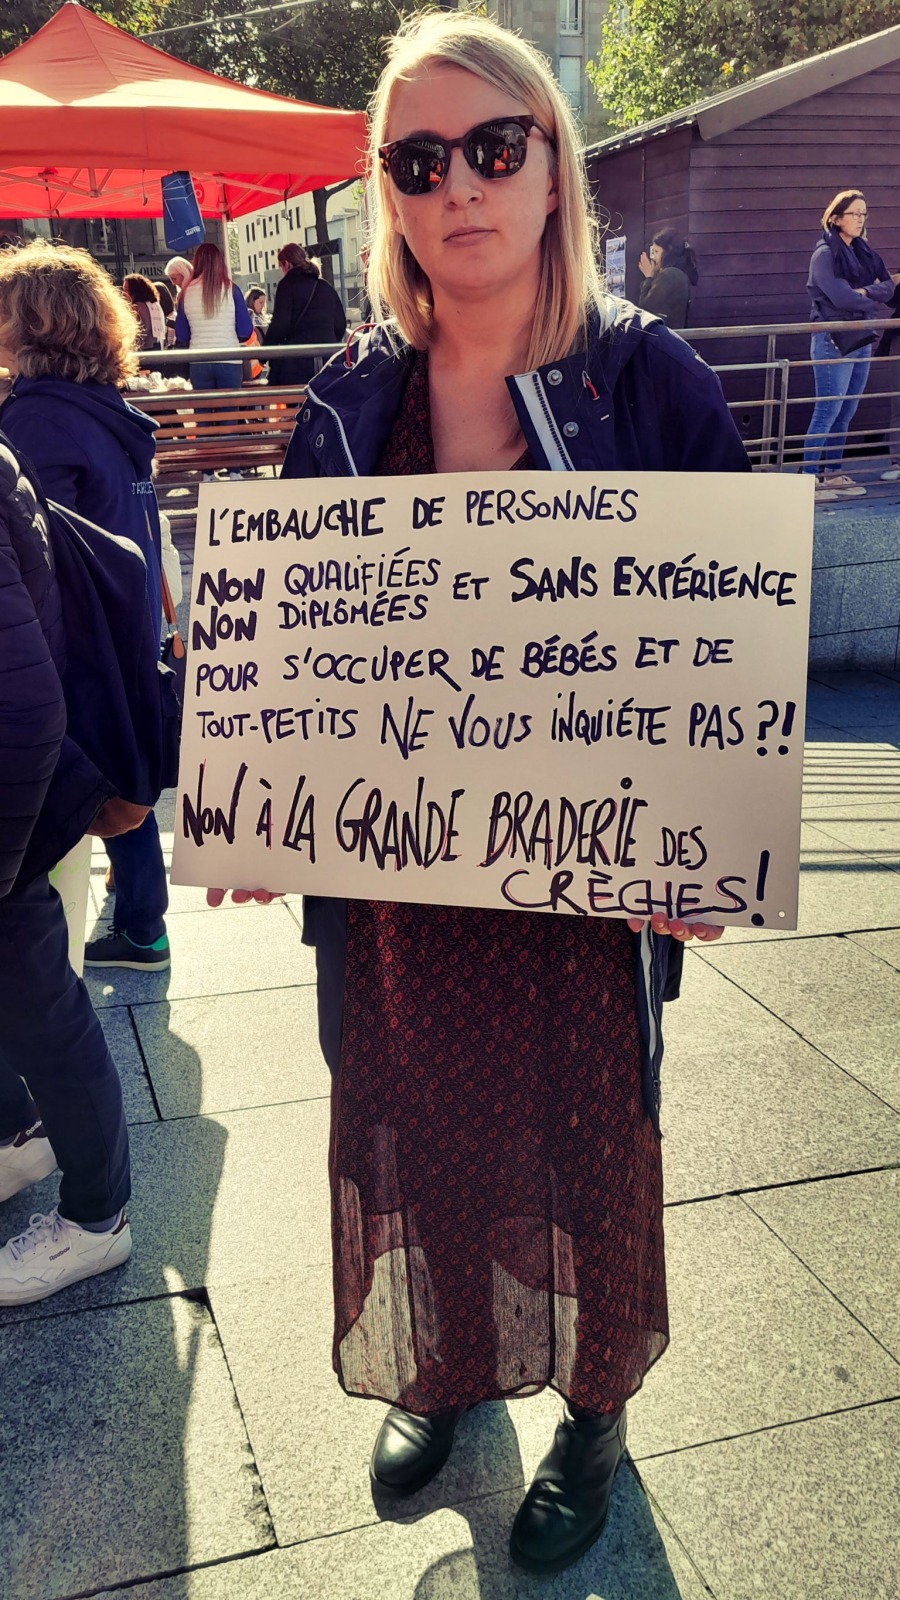 L'EMBAUCHE DE PERSONNES
NON QUALIFIÉES ET SANS EXPÉRIENCE
NON DIPLÔMÉES
POUR S'OCCUPER DE BÉBÉS ET DE
TOUT-PETITS NE VOUS INQUIÉTE PAS ?!
NON À LA GRANDE BRADERIE DES
CRÈCHES!
Reebok